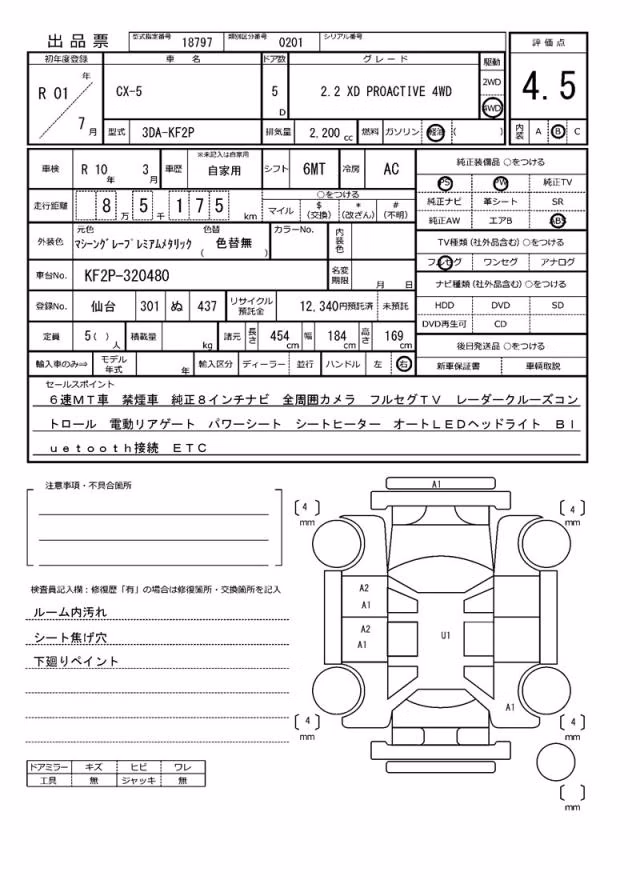 出品票
型式指定番号 18797 類別区分番号 0201 シリアル番号
初年度登録 車名 ドア数 グレード 駆動 評価点
R 01 年 7 月 CX-5 5 D 2.2 XD PROACTIVE 4WD 2WD 4WD 4.5
型式 3DA-KF2P 排気量 2,200 cc 燃料 ガソリン 軽油 ( ) 内装 A B C
車検 R 10 年 3 月 車歴 ※未記入は自家用 自家用 シフト 6MT 冷房 AC
純正装備品 ○をつける
PS PW 純正TV
走行距離 8 万 5 千 1 7 5 km ○をつける マイル $ (交換) * (改ざん) # (不明)
純正ナビ 革シート SR
純正AW エアB ABS
外装色 元色 マシーングレープレミアムメタリック 色替 ( 色替無 ) カラーNo. 内装色
TV種類 (社外品含む) ○をつける
フルセグ ワンセグ アナログ
車台No. KF2P-320480 名変期限 月 日
ナビ種類 (社外品含む) ○をつける
登録No. 仙台 301 ぬ 437 リサイクル預託金 12,340円預託済 未預託
HDD DVD SD
DVD再生可 CD
定員 5( ) 人 積載量 kg 諸元 長さ 454 cm 幅 184 cm 高さ 169 cm
後日発送品 ○をつける
輸入車のみ⇒ モデル年式 年 輸入区分 ディーラー 並行 ハンドル 左 右
新車保証書 車輌取説
セールスポイント
6速MT車 禁煙車 純正8インチナビ 全周囲カメラ フルセグTV レーダークルーズコン
トロール 電動リアゲート パワーシート シートヒーター オートLEDヘッドライト Bl
uetooth接続 ETC
注意事項・不具合箇所
検査員記入欄:修復歴「有」の場合は修復箇所・交換箇所を記入
ルーム内汚れ
シート焦げ穴
下廻りペイント
ドアミラー キズ ヒビ ワレ
工具 無 ジャッキ 無
A1
4 mm
4 mm
A2
A1
A2
A1
U1
A1
4 mm
4 mm
mm